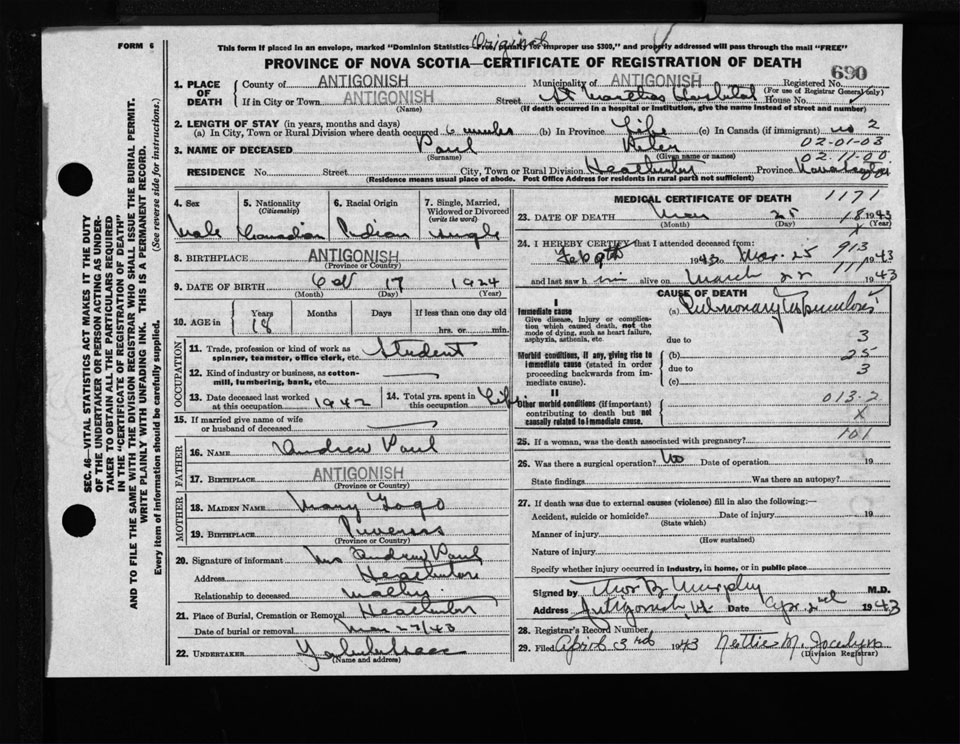 FORM 6
Original
This form if placed in an envelope, marked "Dominion Statistics for improper use $300," and properly addressed will pass through the mail "FREE"
PROVINCE OF NOVA SCOTIA—CERTIFICATE OF REGISTRATION OF DEATH
690
1. PLACE OF DEATH
County of ANTIGONISH Municipality of ANTIGONISH Registered No.
(For use of Registrar General only)
If in City or Town ANTIGONISH Street St Marthas Hospital House No.
(Name) (If death occurred in a hospital or institution, give the name instead of street and number)
2. LENGTH OF STAY (in years, months and days)
(a) In City, Town or Rural Division where death occurred 6 weeks (b) In Province Life (c) In Canada (if immigrant) no 2
02-01-03
3. NAME OF DECEASED Paul
(Surname) (Given name or names)
02.11.00
RESIDENCE No. Street City, Town or Rural Division Heatherton Province Nova Scotia
(Residence means usual place of abode. Post Office Address for residents in rural parts not sufficient)
4. Sex
Male
5. Nationality
(Citizenship)
Canadian
6. Racial Origin
Indian
7. Single, Married, Widowed or Divorced
(write the word)
single
8. BIRTHPLACE ANTIGONISH
(Province or Country)
9. DATE OF BIRTH Oct 17 1924
(Month) (Day) (Year)
10. AGE in
Years Months Days If less than one day old
18 hrs. or min.
OCCUPATION
11. Trade, profession or kind of work as spinner, teamster, office clerk, etc. Student
12. Kind of industry or business, as cotton-mill, lumbering, bank, etc.
13. Date deceased last worked at this occupation 1942
14. Total yrs. spent in this occupation Life
15. If married give name of wife or husband of deceased
FATHER
16. NAME Andrew Paul
17. BIRTHPLACE ANTIGONISH
(Province or Country)
MOTHER
18. MAIDEN NAME Mary Gogo
19. BIRTHPLACE Inverness
(Province or Country)
20. Signature of informant Mrs Andrew Paul
Address Heatherton
Relationship to deceased Mother
21. Place of Burial, Cremation or Removal Heatherton
Date of burial or removal Mar 27/43
22. UNDERTAKER
(Name and address)
MEDICAL CERTIFICATE OF DEATH
1171
23. DATE OF DEATH Mar 25 1943
(Month) (Day) 18
X
24. I HEREBY CERTIFY that I attended deceased from:
913
Feb 9th 1943 to Mar. 25 1943
111
and last saw him alive on March 22 1943
CAUSE OF DEATH
I
Immediate cause
Give disease, injury or complication which caused death, not the mode of dying, such as heart failure, asphyxia, asthenia, etc.
(a) Pulmonary Tuberculosis
due to 3
Morbid conditions, if any, giving rise to immediate cause (stated in order proceeding backwards from immediate cause).
(b) 25
due to 3
(c)
II
Other morbid conditions (if important) contributing to death but not causally related to immediate cause.
013.2
X
101
25. If a woman, was the death associated with pregnancy?
26. Was there a surgical operation? No Date of operation 19
State findings Was there an autopsy?
27. If death was due to external causes (violence) fill in also the following:—
Accident, suicide or homicide? Date of injury 19
(State which)
Manner of injury
(How sustained)
Nature of injury
Specify whether injury occurred in industry, in home, or in public place
Signed by Thos B Murphy M.D.
Address Antigonish Date Apr. 2nd 1943
28. Registrar's Record Number
29. Filed April 3rd 1943 Nettie M. Jocelyn
(Division Registrar)
SEC. 46—VITAL STATISTICS ACT MAKES IT THE DUTY
OF THE UNDERTAKER OR PERSON ACTING AS UNDER-
TAKER TO OBTAIN ALL THE PARTICULARS REQUIRED
IN THE "CERTIFICATE OF REGISTRATION OF DEATH"
AND TO FILE THE SAME WITH THE DIVISION REGISTRAR WHO SHALL ISSUE THE BURIAL PERMIT.
WRITE PLAINLY WITH UNFADING INK. THIS IS A PERMANENT RECORD.
Every item of information should be carefully supplied. (See reverse side for instructions.)